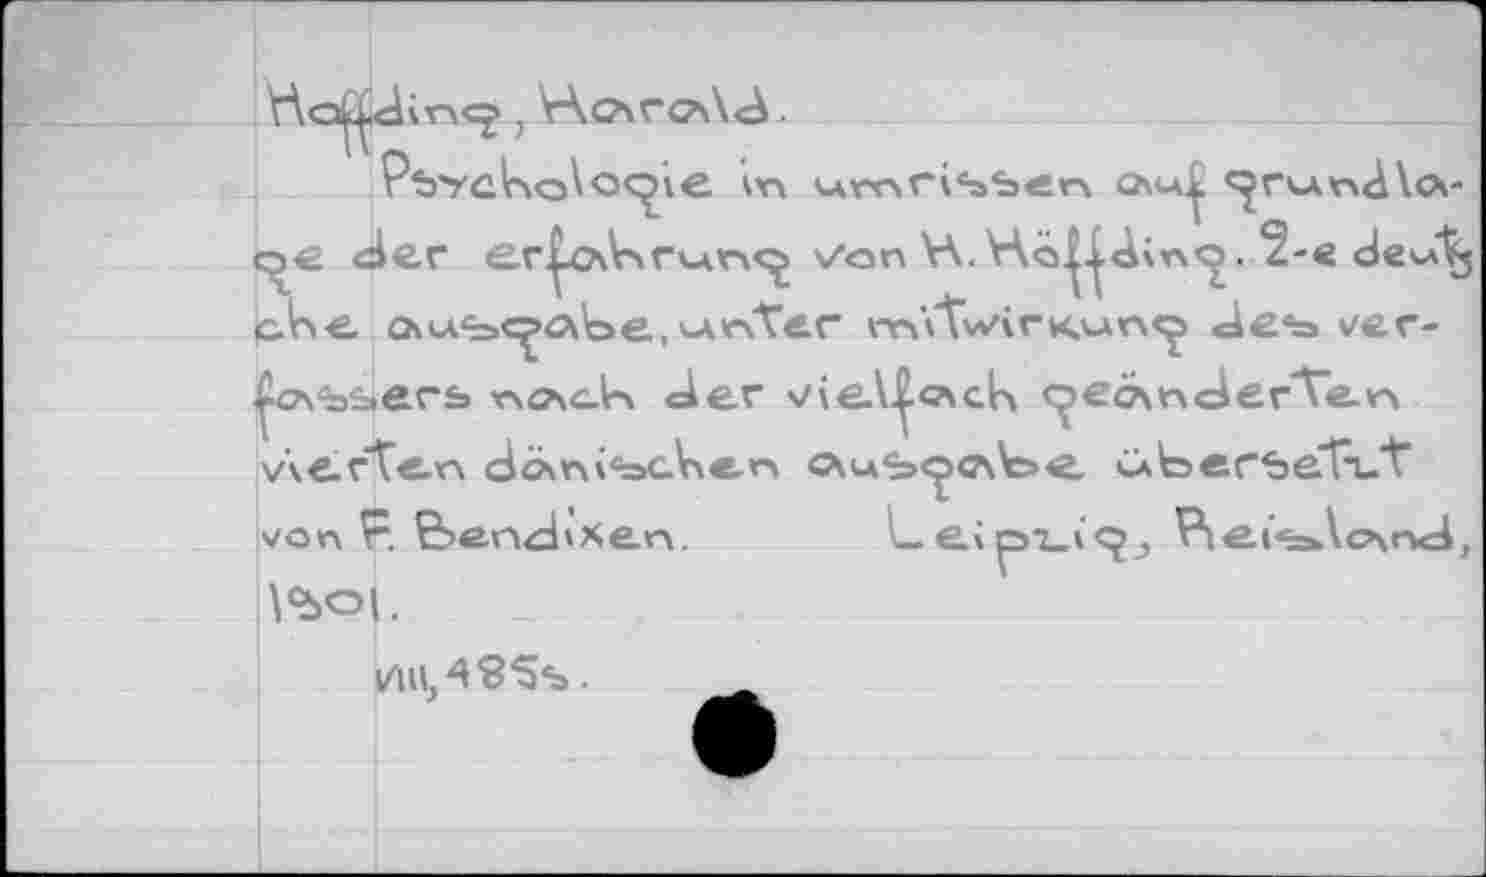 Höffding, Harald.
Psychologie in umrissen auf grundla-
ge der erfahrung von H. Höffding. 2-e deuts
che ausgabe, unter mitwirkung des ver-
fassers nach der vielfach geänderten
vierten dänischen ausgabe übersetzt
von F. Bendixen. Leipzig, Reisland,
1901.
VIII, 485s.